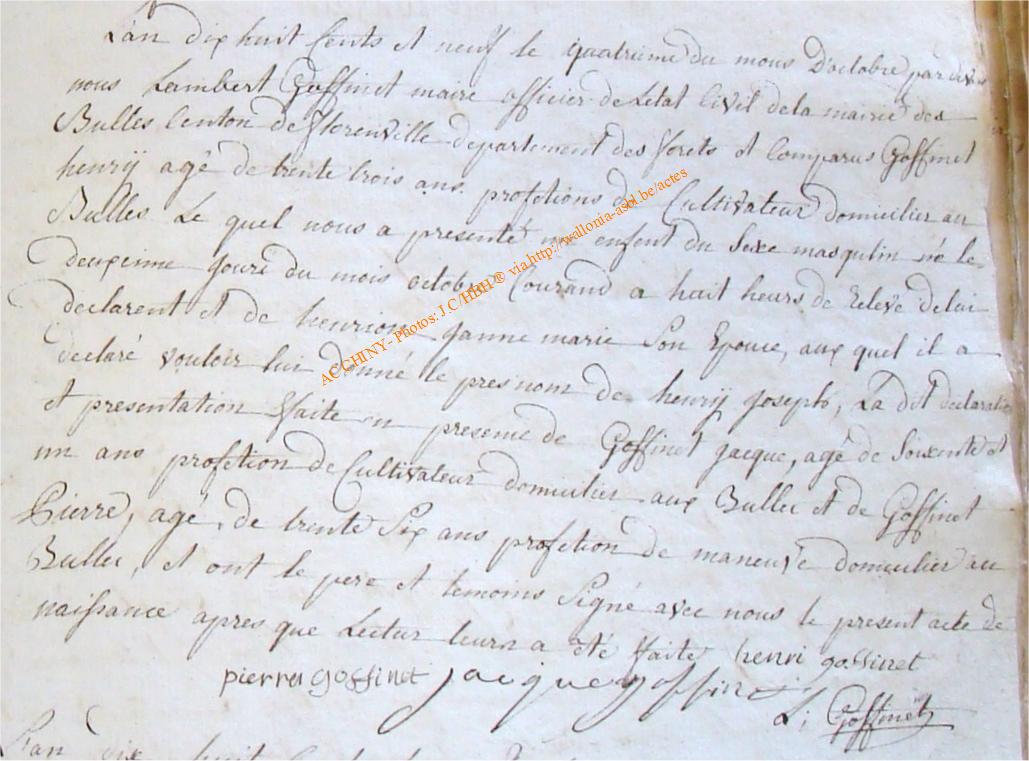 L'an dix huit Cents et neuf le quatrieme du mous D'octobre par devt
nous Lambert Goffinet maire officier de Letat Civil de la mairie des
Bulles Centon de florenville departement des forets et Comparus Goffinet
henrÿ agé de trente trois ans profetions de Cultivateur domicilier au
Bulles Le quel nous a presenté un enfent du Sexe masqulin né le
deuxieme Joure du mois octobre Courand a huit heurs de Releve de lui
declarent et de henrion Janne marie Son Epouce, aux quel il a
declaré vouloir lui donné le pres nom de henrÿ Joseph, La dit declaration
et presentation ffaite en presence de Goffinet jacque, agé de Soixente et
un ans profetion de Cultivateur domicilier aux Bulles et de Goffinet
Pierre, agé, de trente Six ans profetion de maneuve domicilier au
Bulles, et ont le pere et temoins Signé avec nous le present acte de
naissance apres que Lectur leurn a été ffaite henri goffinet
pierre goffinet jacque goffinet
L; Goffinet
L'an dix huit
ACCHINY- Photos: J.C/HBH® via http://wallonia-asbl.be/actes